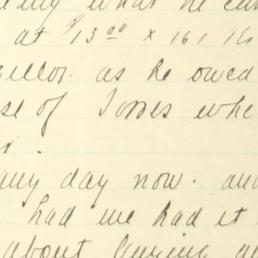 what he can
at $13.00 x 161 16
as he owed
se of Torres whe
any day now. and
had me had it
about buying a